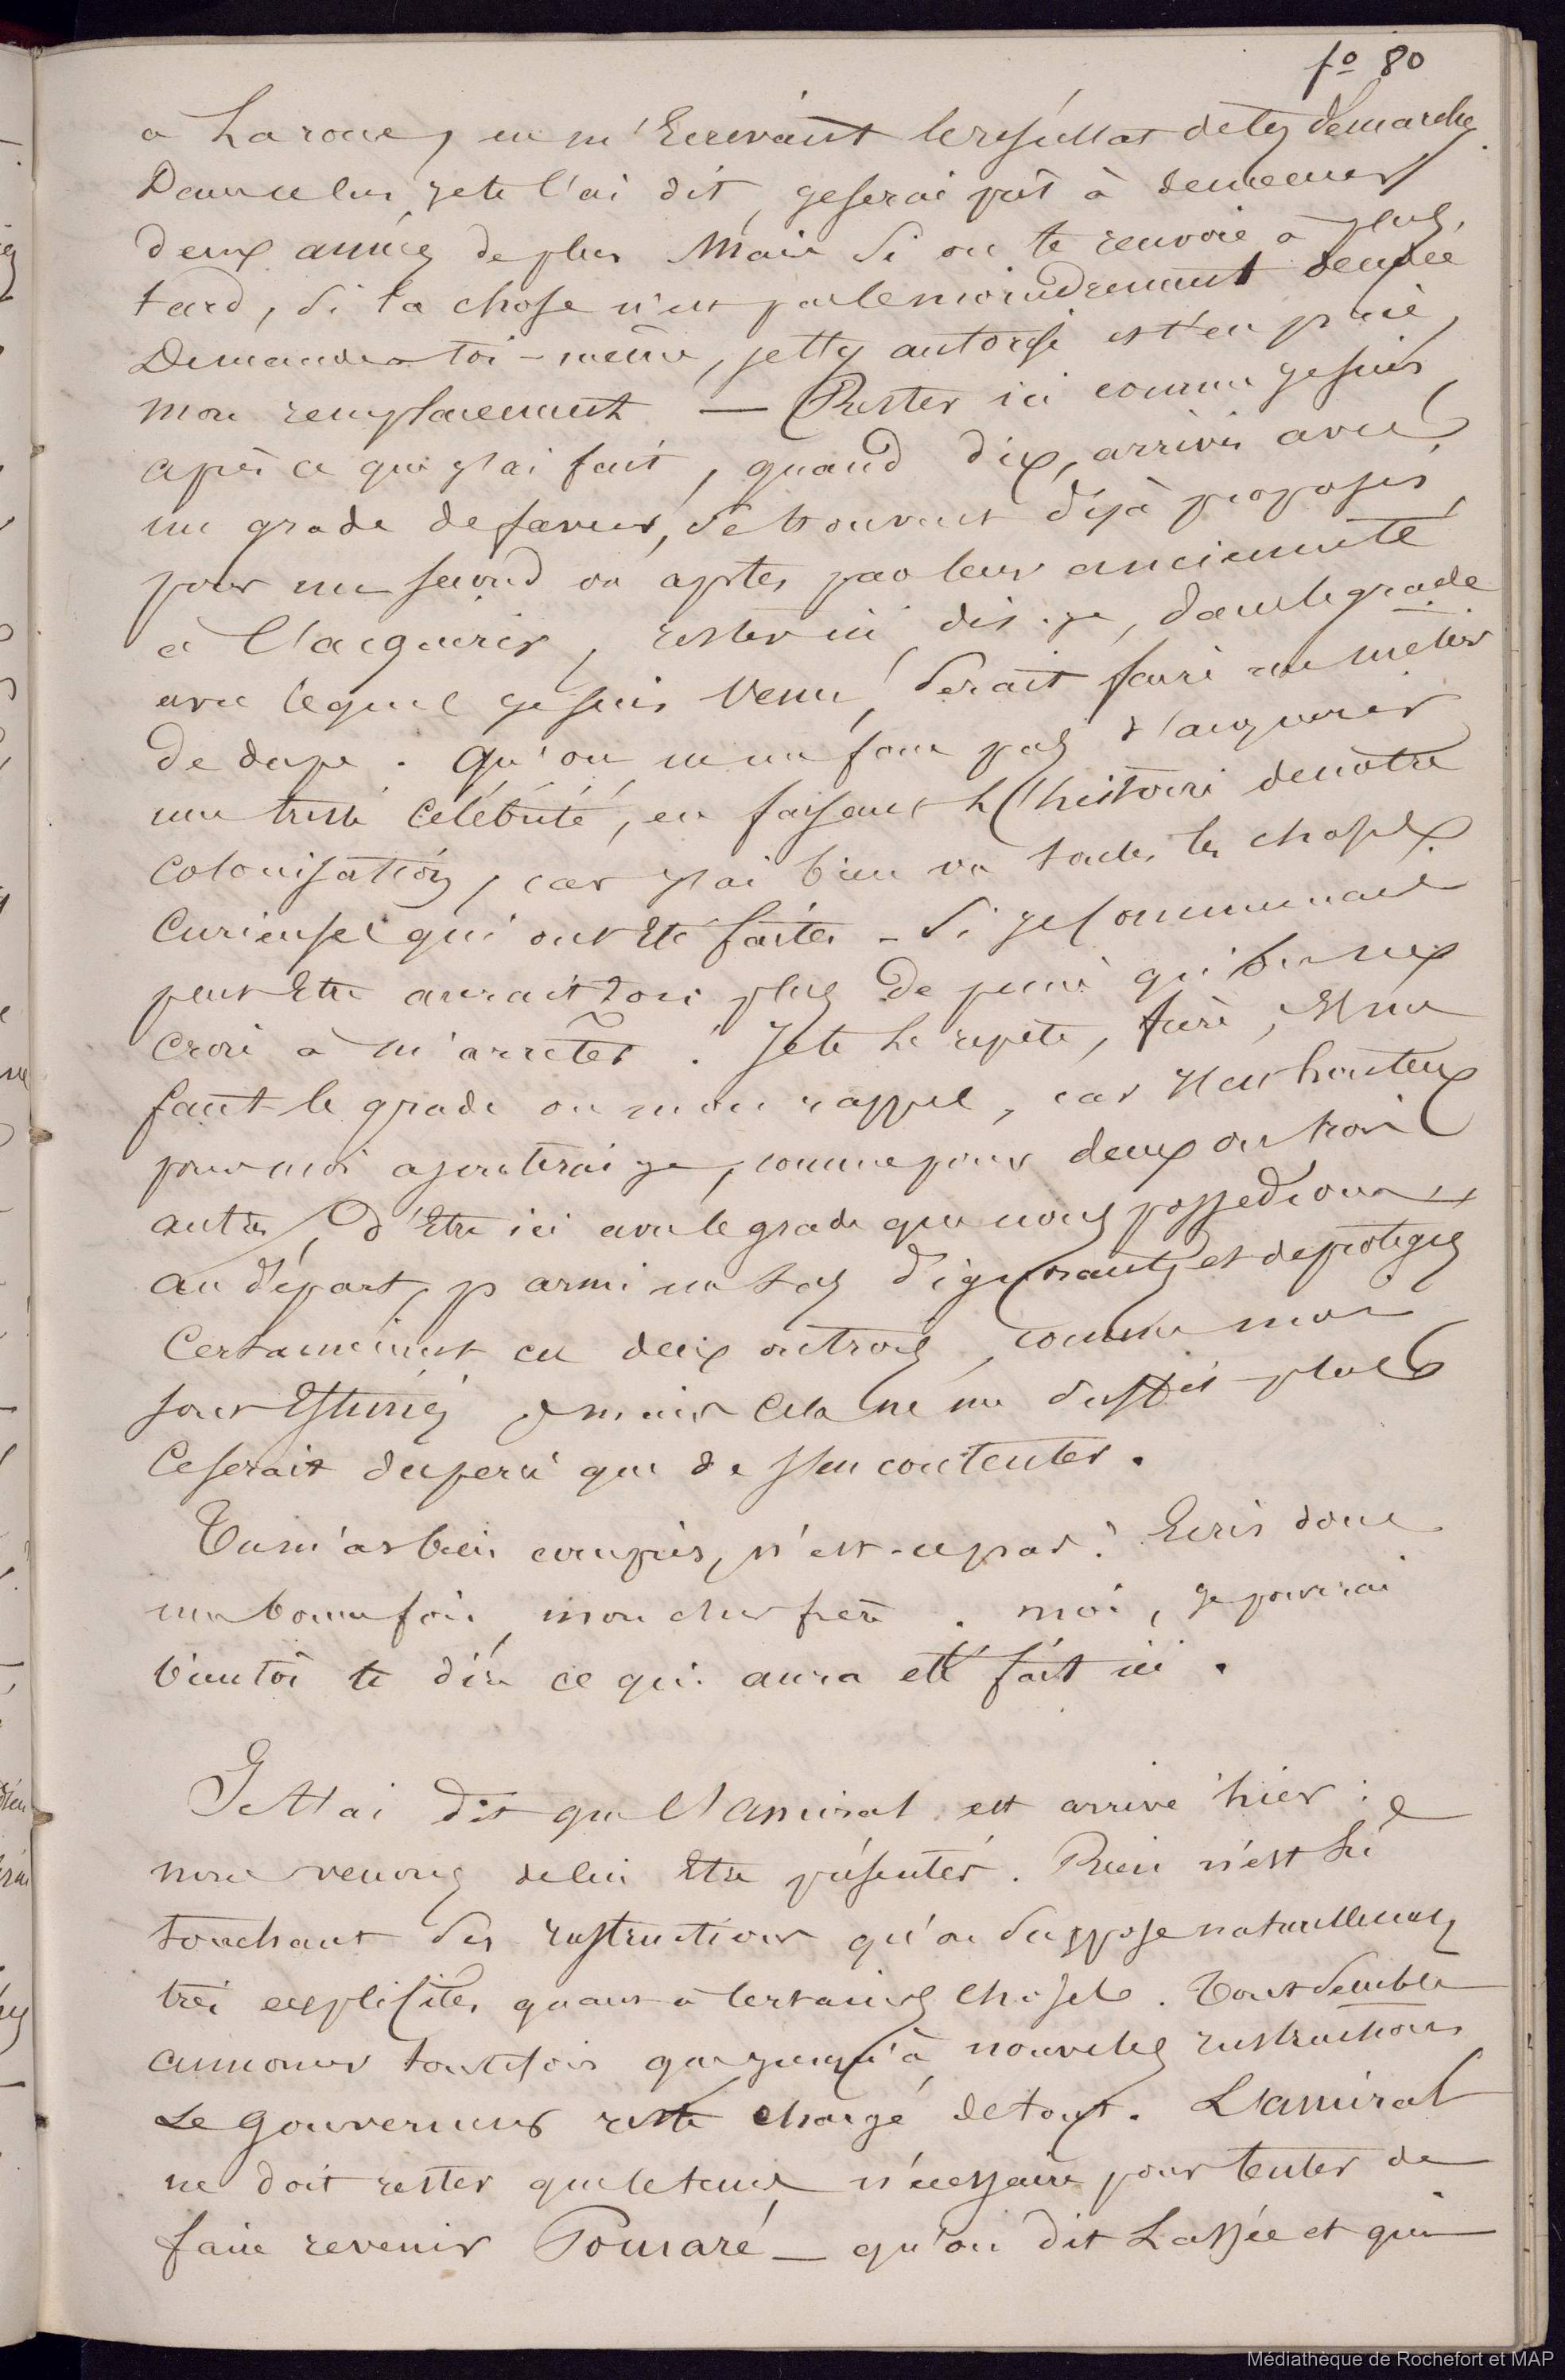 fo 80
a Laroque, en m'Ecrivant le résultat detes demarche.
Dans ce cas, je te l'ai dit, jeserai prêt à demeurer
deux années de plus Mais Si on te renvoie à plus
tard, Si la chose n'est pas le moindrement decidée
Demande toi-même, je t'y autorise et t'en prie,
mon remplacement — Rester ici comme je suis,
après ce que j'ai fait, quand dix, arrivés avec
un grade de faveur, se trouvent déjà proposés
pour un second ou aptes par leur ancienneté
à l'acquérir, rester ici, dis-je, dans le grade
avec lequel je suis venu, Serait faire un métier
De dupe. Qu'on ne me fasse pas l'acquerir
une triste célébrité, en faisant l'histoire denotre
Colonisation, car j'ai bien vu toutes les choses
Curieuses qui ont Eté faites - Si je Commençais
peut Etre aurait-on plus de peine qu'on ne
Croie à m'arrêter. Je te le repète, frère, Il me
faut le grade ou mon rappel, car Il est honteux
pour moi ajouterai je, comme pour deux ou trois
autres, d'Etre ici avec le grade que nous possedions
au départ, parmi un tas d'ignorants et de protégés
Certainement ces deux ou trois, comme moi
sont Estimés mais Cela ne me suffit plus
Ce serait duperie que de s'en contenter.
Tu m'as bien compris, n'est-ce pas? Ecris donc
une bonne fois, mon cher frère. moi, je pourrai
bientôt te dire ce qui aura été fait ici.
Je t'ai dit que l'amiral est arrivé hier:
nous venons de lui Etre présentés. Rien n'est Su
touchant Ses Instructions qu'on suppose naturellement
très explicites quant à Certaines Choses. Tout Semble
annoncer toutefois que jusqu'à nouvelles Instructions
Le Gouverneur reste chargé de tout. L'amiral
ne doit rester que le temps nécessaire pour tenter de
faire revenir Pomaré — qu'on dit Lassée et qui
Médiathèque de Rochefort et MAP